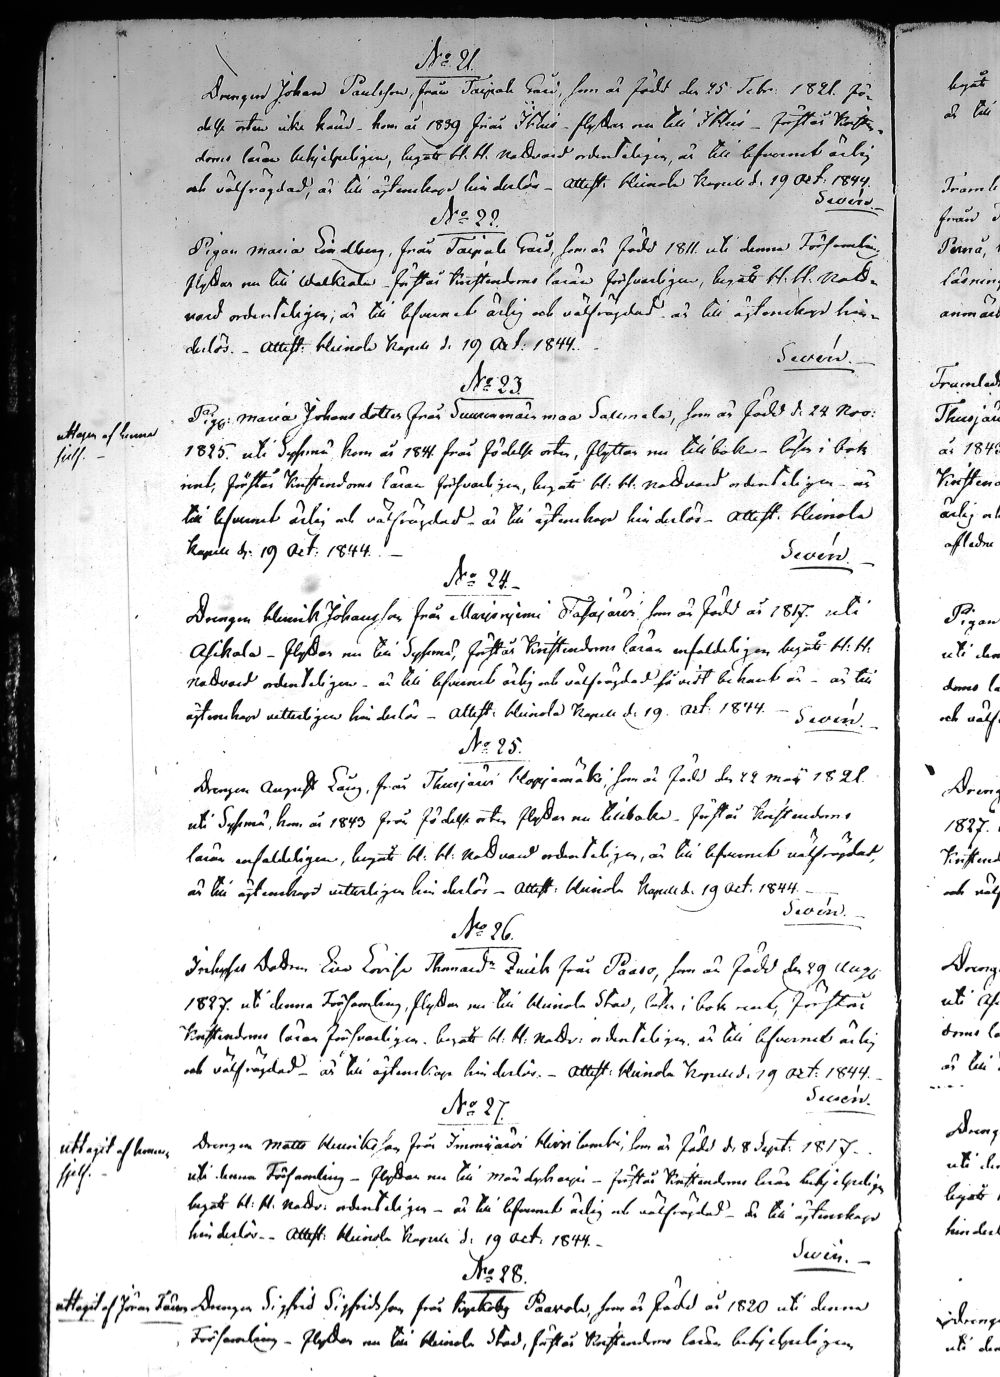 No 21.
Drengen Johan Paulsson, från Taipale Gård, som är född den 25 Febr: 1821. fö-
delse orten icke känd - kom år 1839 från Ithis - flyttar nu till Ithis - förstår Kristen-
doms läran behjelpeligen, begått H. H. Nattvard ordenteligen, är till lefvernet ärlig
och välfrägdad, är till ägtenskap hinderlös - Attest: Heinola Kapell d. 19 Oct. 1844.
Sevón.
No 22.
Pigan Maria Lindberg, från Taipale Gård, som är född 1811. uti denna Församling,
flyttar nu till Walkeala - förstår Kristendoms läran försvarligen, begått H. H. Natt-
vard ordenteligen, är till lefvernet ärlig och välfrägdad - är till ägtenskap hin-
derlös. - Attest: Heinola Kapell d. 19 Oct: 1844.
Sevón. -
No 23.
uttagen af henne
sjelf. -
Pig: Maria Johans dotter från Suurenmäen maa Saumala, som är född d. 24 Nov:
1825. uti Sysmä, kom år 1841 från födelse orten, flyttar nu tillbaka - läser i bok
rent, förstår Kristendoms läran försvarligen, begått H. H. Nattvard ordenteligen - är
till lefvernet ärlig och välfrägdad - är till ägtenskap hinderlös - Attest. Heinola
Kapell d. 19 Oct: 1844. -
Sevón. -
No 24.
Drengen Henrik Johansson från Marjoniemi, som är född år 1817. uti
Asikala - flyttar nu till Sysmä, förstår Kristendoms läran enfaldeligen begått H: H.
Nattvard ordenteligen - är till lefvernet ärlig och välfrägdad så vidt bekant är - är till
ägtenskap vetterligen hinderlös - Attest: Heinola Kapell d. 19. Oct. 1844. - Sevón. -
No 25.
Drengen August Lång, från Thusjärvi Hopjamäki, som är född den 22 Maij 1821.
uti Sysmä, kom år 1843 från födelse orten flyttar nu tillbaka - förstår Kristendoms
läran enfaldeligen, begått H: H: Nattvard ordenteligen, är till lefvernet välfrägdad,
är till ägtenskap vetterligen hinderlös - Attest: Heinola Kapell d. 19 Oct. 1844. -
Sevón. -
No 26.
Inhyses Dottren Eva Lovisa Thomasdr Quick från Paaso, som är född den 29 Aug:
1827. uti denna Församling, flyttar nu till Heinola Stad, läser i bok rent, förstår
Kristendoms läran försvarligen. begått H: H: Nattv: ordenteligen. är till lefvernet ärlig
och välfrägdad - är till ägtenskap hinderlös. - Attest: Heinola Kapell d. 19 Oct: 1844. -
Sevón.
No 27.
uttagit af honom
sjelf. -
Drengen Matts Henriksson från Immijärvi Hirvilambi, som är född d. 8 Sept. 1817. -
uti denna Församling - flyttar nu till Mändyharju - förstår Kristendoms läran behjelpeligen
begått H: H: Nattv: ordenteligen - är till lefvernet ärlig och välfrägdad - är till ägtenskap
hinderlös. - Attest: Heinola Kapell d. 19 Oct. 1844. -
Sevón. -
No 28.
uttagit af Jöran
Drengen Sigfrid Sigfridsson från Paavola, som är född år 1820 uti denna
Församling - flyttar nu till Heinola Stad, förstår Kristendoms läran behjelpeligen
begått
är till
från
Pernå,
läsning
anmärk
Thusjär
år 1843
Kristen
ärlig och
Pigan
uti den
doms lä
och välf
Dreng
1827.
Kristend
och väl
Dreng
uti
doms lä
är till
Dreng
uti de
begått
hinderl
Drenge
uti den